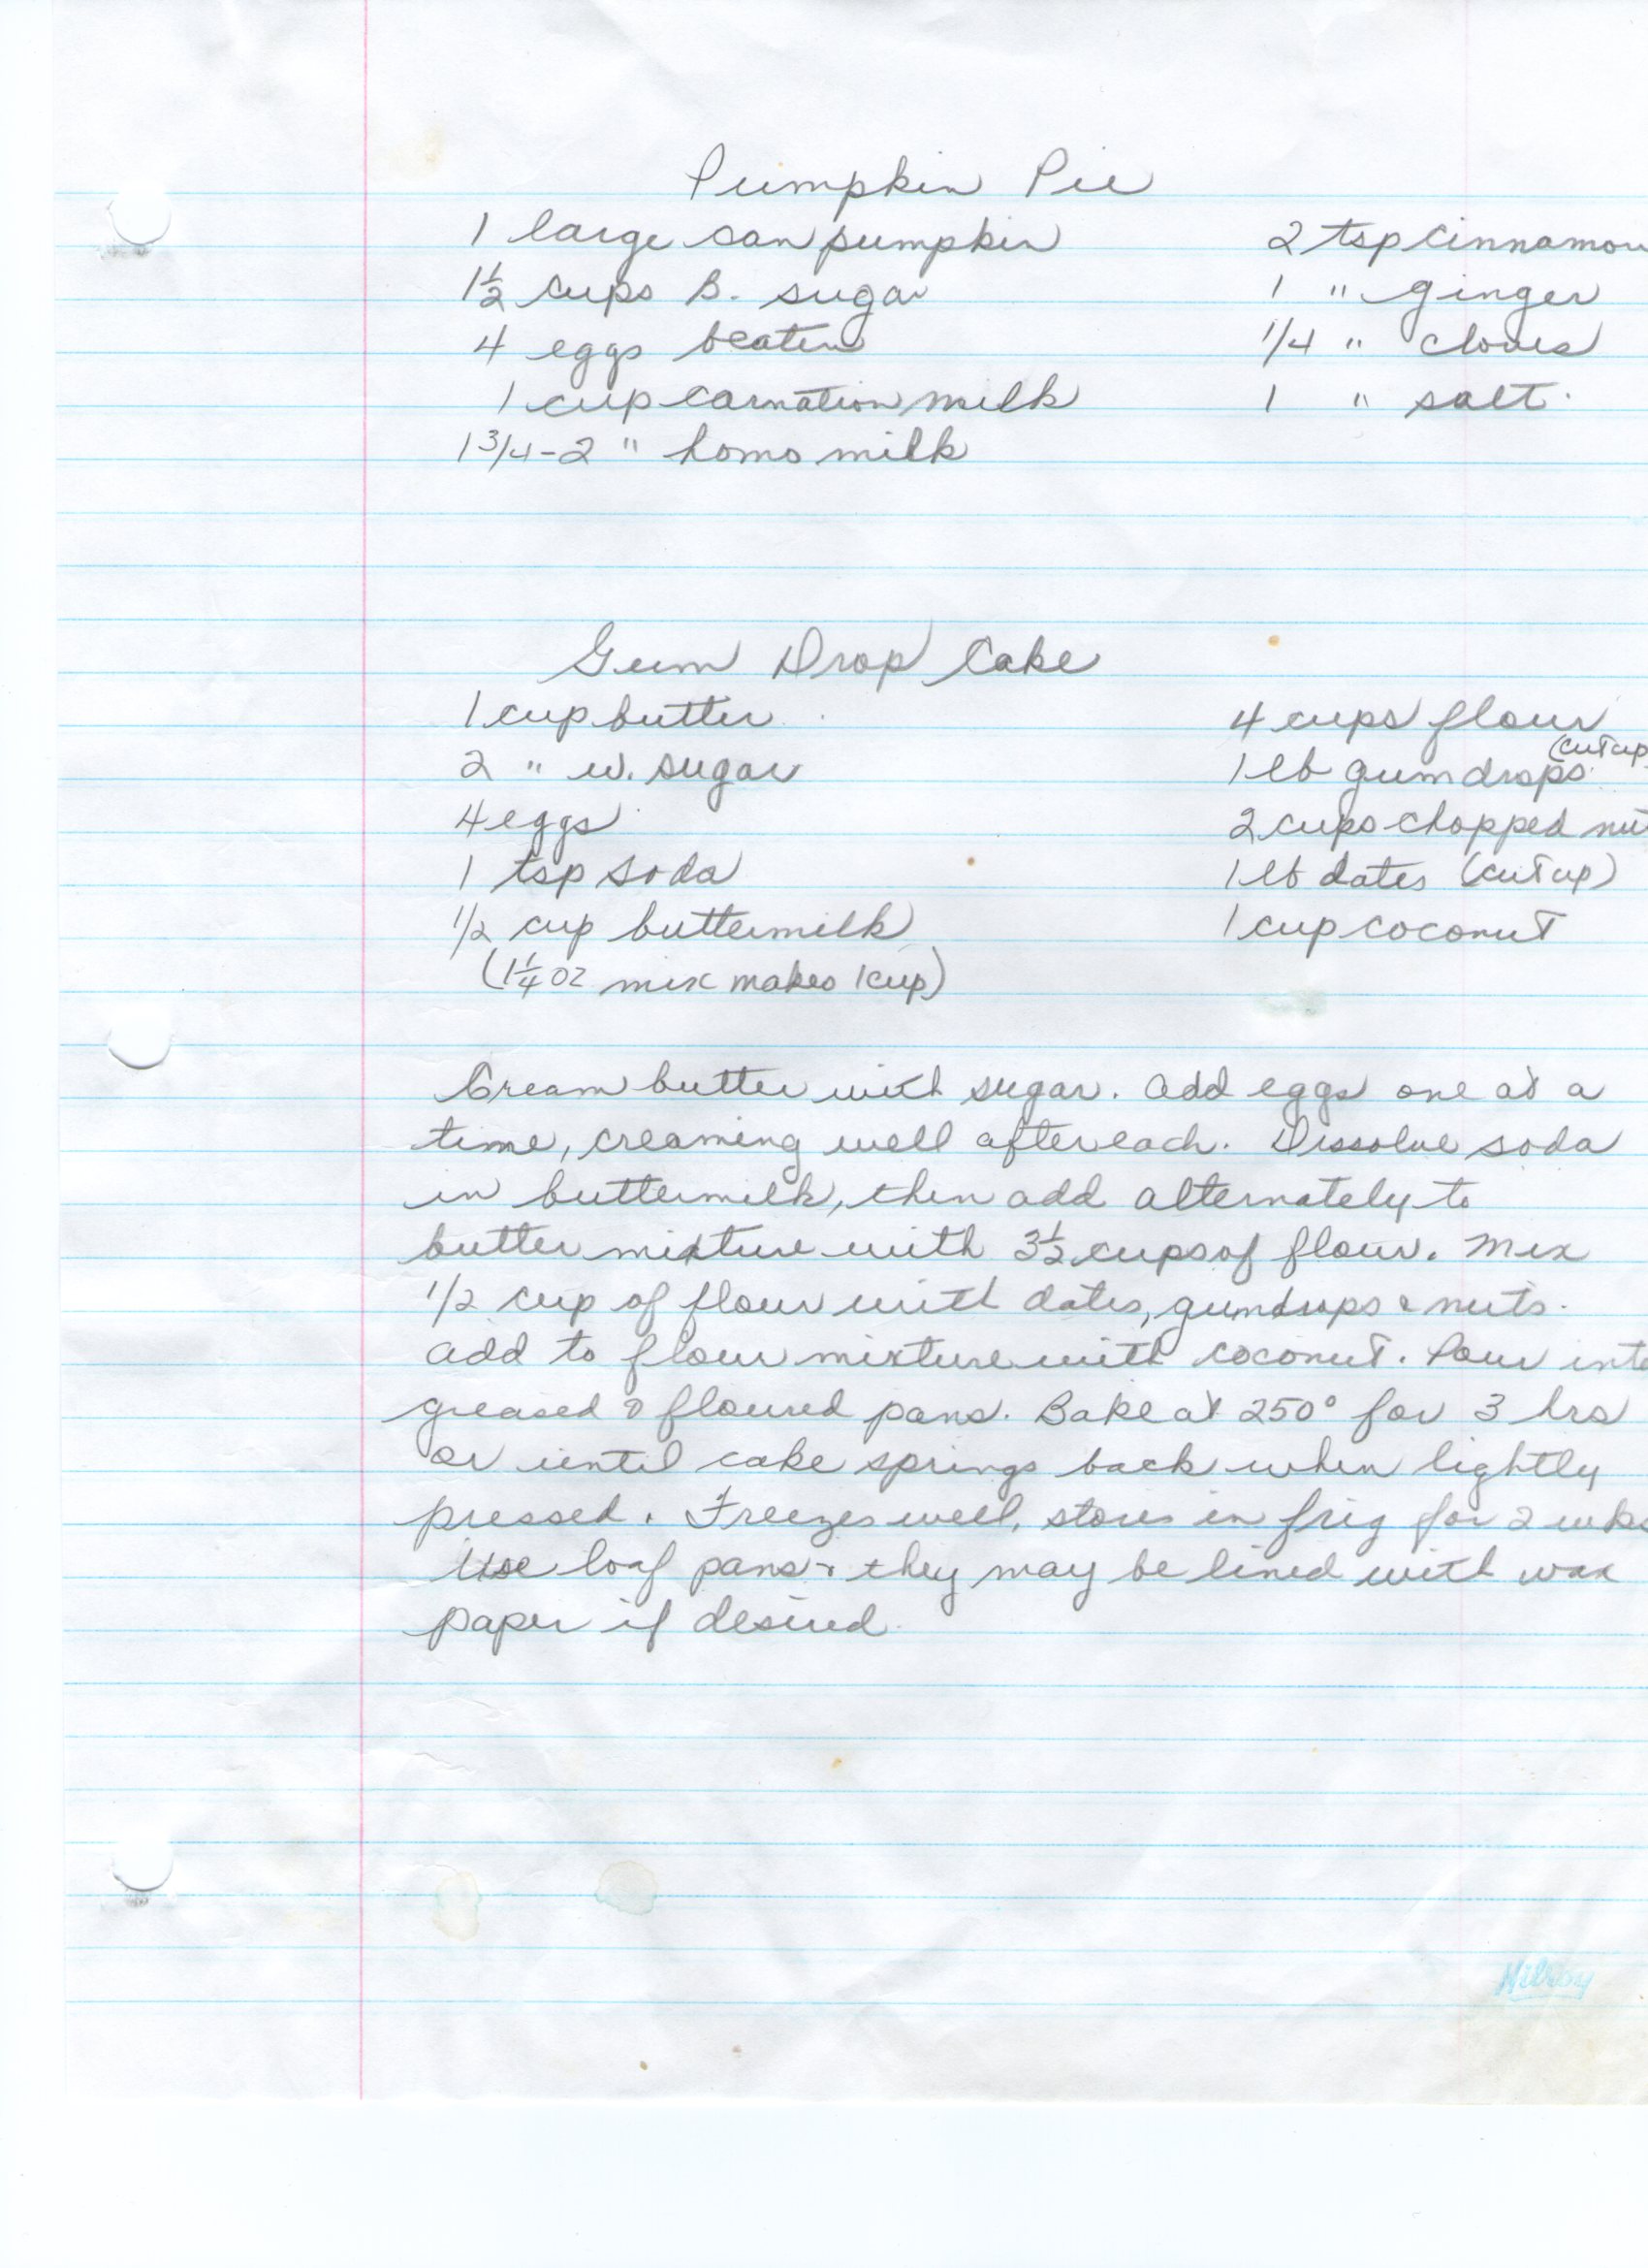 Pumpkin Pie
1 large can pumpkin 2 tsp cinnamon
1½ cups B. sugar 1 " ginger
4 eggs beaten 1/4 " cloves
1 cup carnation milk 1 " salt.
1 3/4-2 " homo milk
Gum Drop Cake
1 cup butter 4 cups flour
2 " w. sugar 1 lb gumdrops (cut up
4 eggs 2 cups chopped nut
1 tsp soda 1 lb dates (cut up)
1/2 cup buttermilk 1 cup coconut
(1¼ oz mix makes 1 cup)
Cream butter with sugar. Add eggs one at a
time, creaming well after each. Dissolve soda
in buttermilk, then add alternately to
butter mixture with 3½ cups of flour. Mix
1/2 cup of flour with dates, gumdrops & nuts.
Add to flour mixture with coconut. Pour into
greased & floured pans. Bake at 250° for 3 hrs
or until cake springs back when lightly
pressed. Freezes well, stores in frig for 2 wks
Use loaf pans & they may be lined with wax
paper if desired.
Hilroy